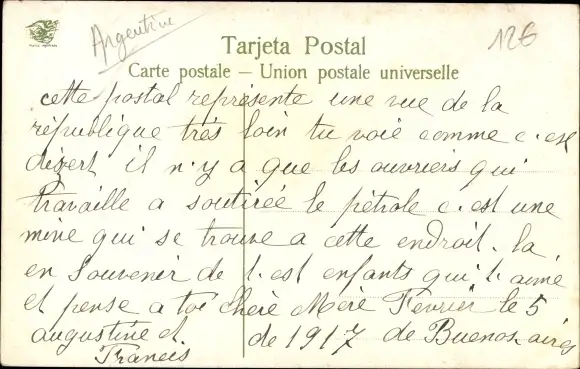 Argentine
126
Tarjeta Postal
Carte postale – Union postale universelle
cette postal représente une vue de la
république trés loin tu voie comme c'est
désert il n'y a que les ouvriers qui
travaille a soutirée le pétrole c'est une
mine qui se trouve a cette endroit. la
en Souvenir de t'est enfants qui t'aime
et pense a toi Chère Mère Fevrier le 5
augustine et de 1917 de Buenos-aires
Francis